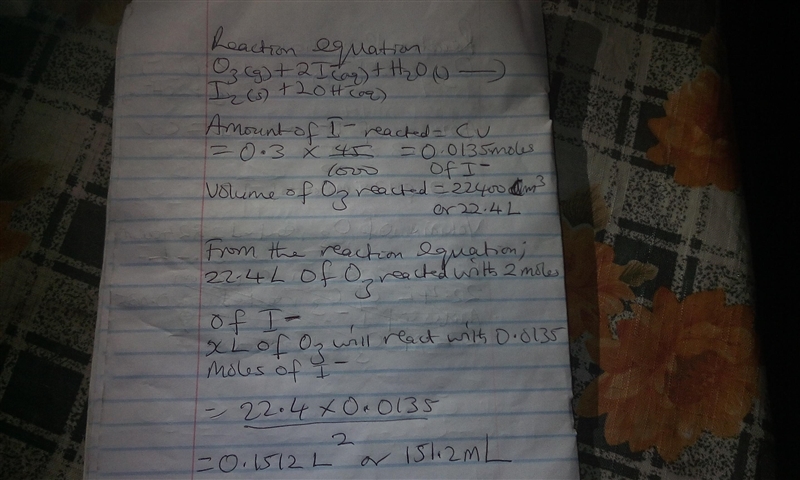 Reaction equation
O3(g) + 2I-(aq) + H2O(l) ⟶
I2(s) + 2OH-(aq)
Amount of I- reacted = CV
= 0.3 × 45/1000 = 0.0135 moles
of I-
Volume of O3 reacted = 22400 cm3
or 22.4 L
From the reaction equation;
22.4 L of O3 reacted with 2 moles
of I-
x L of O3 will react with 0.0135
Moles of I-
= 22.4 × 0.0135
2
= 0.1512 L or 151.2 mL